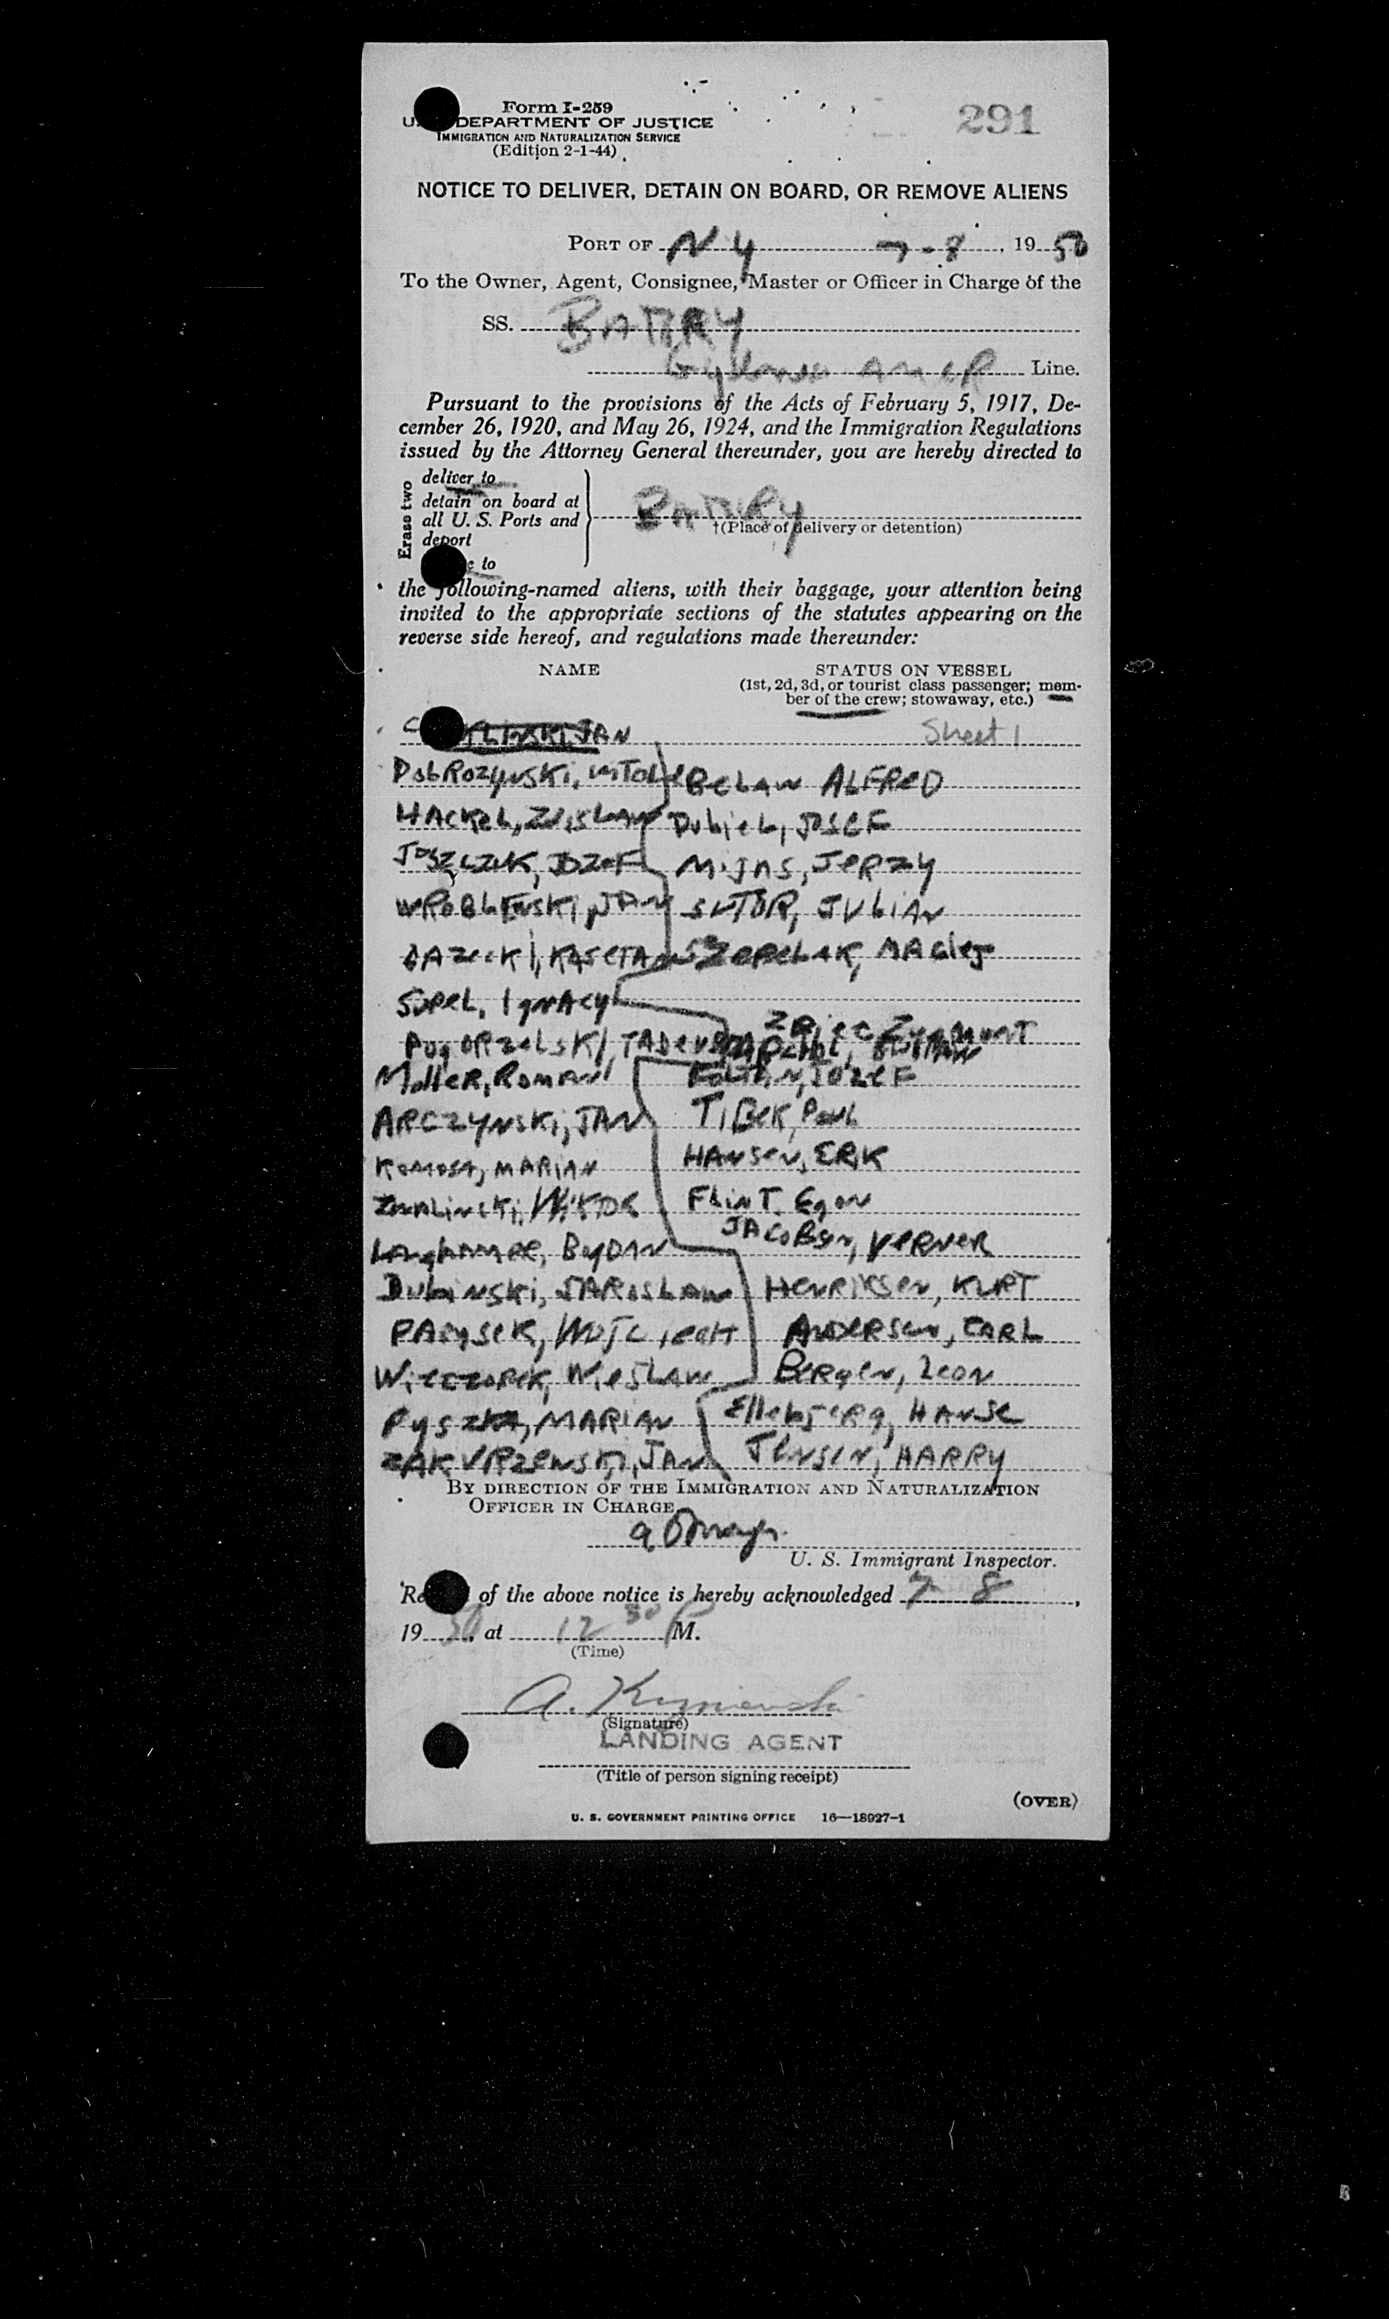 Form I-259
291
U. DEPARTMENT OF JUSTICE
IMMIGRATION AND NATURALIZATION SERVICE
(Edition 2-1-44)
NOTICE TO DELIVER, DETAIN ON BOARD, OR REMOVE ALIENS
PORT OF N Y 7-8, 1950
To the Owner, Agent, Consignee, Master or Officer in Charge of the
SS. BATORY
AMER Line.
Pursuant to the provisions of the Acts of February 5, 1917, De-
cember 26, 1920, and May 26, 1924, and the Immigration Regulations
issued by the Attorney General thereunder, you are hereby directed to
Erase two
deliver to
detain on board at
all U. S. Ports and
deport
to
BATORY
†(Place of delivery or detention)
the following-named aliens, with their baggage, your attention being
invited to the appropriate sections of the statutes appearing on the
reverse side hereof, and regulations made thereunder:
NAME STATUS ON VESSEL
(1st, 2d, 3d, or tourist class passenger; mem-
ber of the crew; stowaway, etc.)
JAN Sheet 1
DobROZYNSKi, WITOLD BELAW ALFReD
HACKEL, ZDISLAW DubieL, JOSEF
JOSZCZUK, JOZEF MiJAS, JeRZY
WROBLEWSKI, JAN SUTOR, JULIAN
KAJETAN SZEPELAK, MACIeJ
SOPEL, IGNACY
POGORZELSKI, TADEUSZ ZAJEC Zygmunt
MolleR, ROMAN FOLTYN, JOZEF
ARCZYNSKi, JAN TIBEK, PAUL
KOMOSA, MARIAN HANSEN, ERIK
WiKTOR FLINT, Egon
BOgDAN JACOBSEN, VERNER
DubiNSKi, JAROSLAW HENRIKSEN, KURT
PASYSEK, WOJCIECH ANDERSEN, CARL
WIECZOREK, WiESLAW BERGEN, LEON
PYSZKA, MARIAN ELLEbJERG, HANSE
ZAKURZEWSKI, JAN JENSEN, HARRY
BY DIRECTION OF THE IMMIGRATION AND NATURALIZATION
OFFICER IN CHARGE
U. S. Immigrant Inspector.
Re of the above notice is hereby acknowledged 7 8,
1950, at 12 30 P M.
(Time)
A.
(Signature)
LANDING AGENT
(Title of person signing receipt)
(OVER)
U. S. GOVERNMENT PRINTING OFFICE 16—18927-1